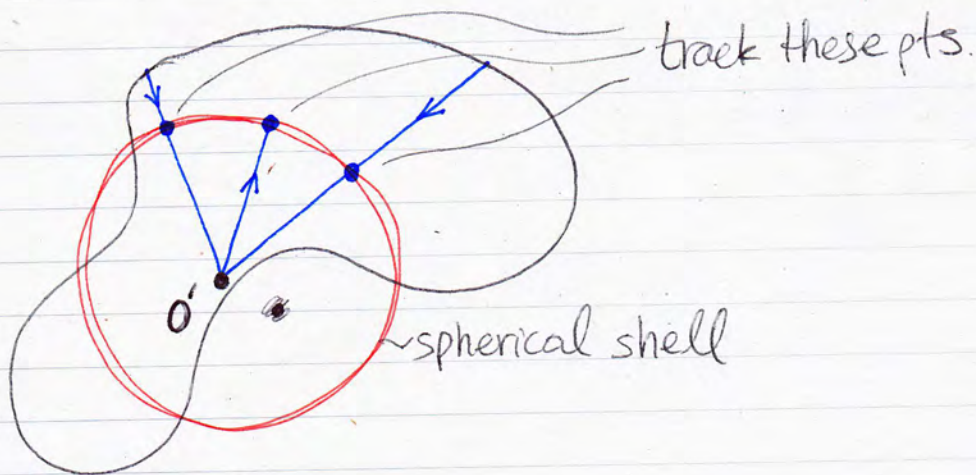 track these pts.
O'
spherical shell